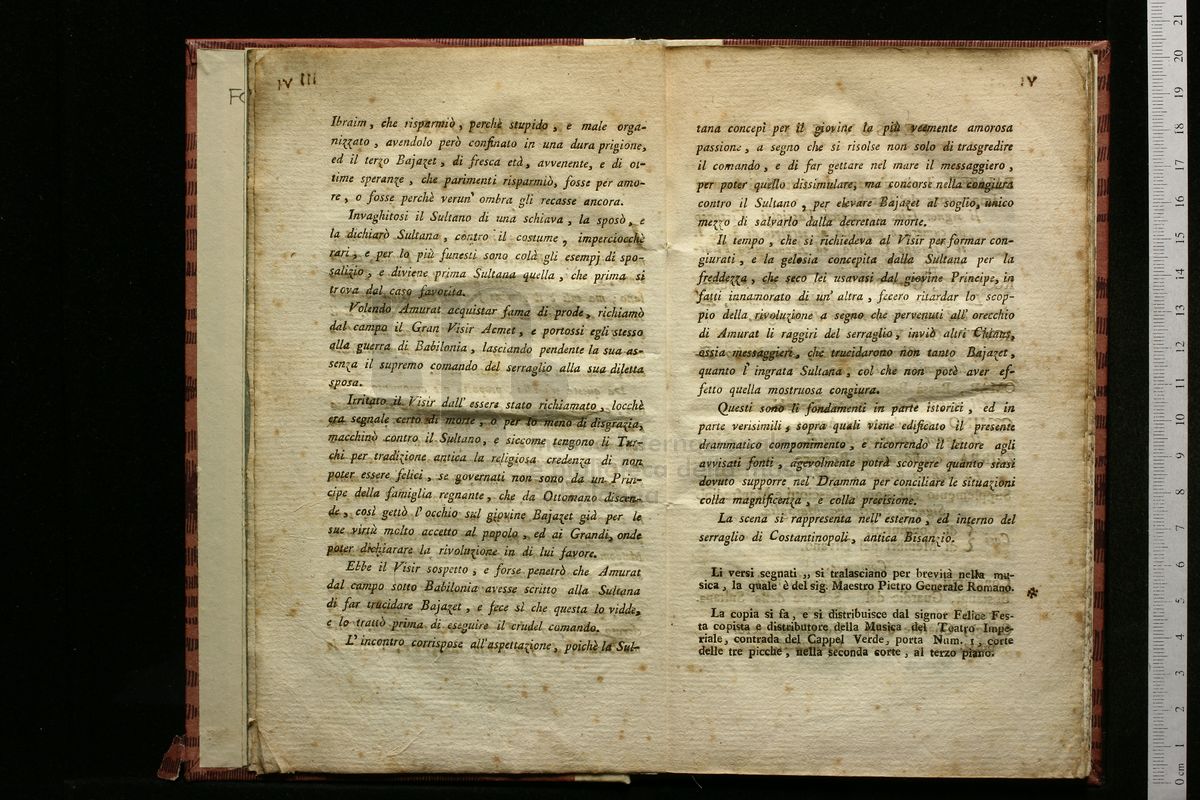 IV III
Ibraim, che risparmiò, perchè stupido, e male orga-
nizzato, avendolo però confinato in una dura prigione,
ed il terzo Bajazet, di fresca età, avvenente, e di ot-
time speranze, che parimenti risparmiò, fosse per amo-
re, o fosse perchè verun' ombra gli recasse ancora.
Invaghitosi il Sultano di una schiava, la sposò, e
la dichiarò Sultana, contro il costume, imperciocchè
rari, e per lo più funesti sono colà gli esempj di spo-
salizio, e diviene prima Sultana quella, che prima si
trova dal caso favorita.
Volendo Amurat acquistar fama di prode, richiamò
dal campo il Gran Visir Acmet, e portossi egli stesso
alla guerra di Babilonia, lasciando pendente la sua as-
senza il supremo comando del serraglio alla sua diletta
sposa.
Irritato il Visir dall' essere stato richiamato, locchè
era segnale certo di morte, o per lo meno di disgrazia,
macchinò contro il Sultano, e siccome tengono li Tur-
chi per tradizione antica la religiosa credenza di non
poter essere felici, se governati non sono da un Prin-
cipe della famiglia regnante, che da Ottomano discen-
de, così gettò l'occhio sul giovine Bajazet già per le
sue virtù molto accetto al popolo, ed ai Grandi, onde
poter dichiarare la rivoluzione in di lui favore.
Ebbe il Visir sospetto, e forse penetrò che Amurat
dal campo sotto Babilonia avesse scritto alla Sultana
di far trucidare Bajazet, e fece sì che questa lo vidde,
e lo trattò prima di eseguire il crudel comando.
L' incontro corrispose all'aspettazione, poichè la Sul-
IV
tana concepì per il giovine la più veemente amorosa
passione, a segno che si risolse non solo di trasgredire
il comando, e di far gettare nel mare il messaggiero,
per poter quello dissimulare, ma concorse nella congiura
contro il Sultano, per elevare Bajazet al soglio, unico
mezzo di salvarlo dalla decretata morte.
Il tempo, che si richiedeva al Visir per formar con-
giurati, e la gelosia concepita dalla Sultana per la
freddezza, che seco lei usavasi dal giovine Principe, in
fatti innamorato di un' altra, fecero ritardar lo scop-
pio della rivoluzione a segno che pervenuti all' orecchio
di Amurat li raggiri del serraglio, inviò altri Chiaus,
ossia messaggieri, che trucidarono non tanto Bajazet,
quanto l' ingrata Sultana, col che non potè aver ef-
fetto quella mostruosa congiura.
Questi sono li fondamenti in parte istorici, ed in
parte verisimili, sopra quali viene edificato il presente
drammatico componimento, e ricorrendo il lettore agli
avvisati fonti, agevolmente potrà scorgere quanto siasi
dovuto supporre nel Dramma per conciliare le situazioni
colla magnificenza, e colla precisione.
La scena si rappresenta nell' esterno, ed interno del
serraglio di Costantinopoli, antica Bisanzio.
Li versi segnati ,, si tralasciano per brevità nella mu-
sica, la quale è del sig. Maestro Pietro Generale Romano.
La copia si fa, e si distribuisce dal signor Felice Fes-
ta copista e distributore della Musica del Teatro Impe-
riale, contrada del Cappel Verde, porta Num. 1, corte
delle tre picche, nella seconda corte, al terzo piano.